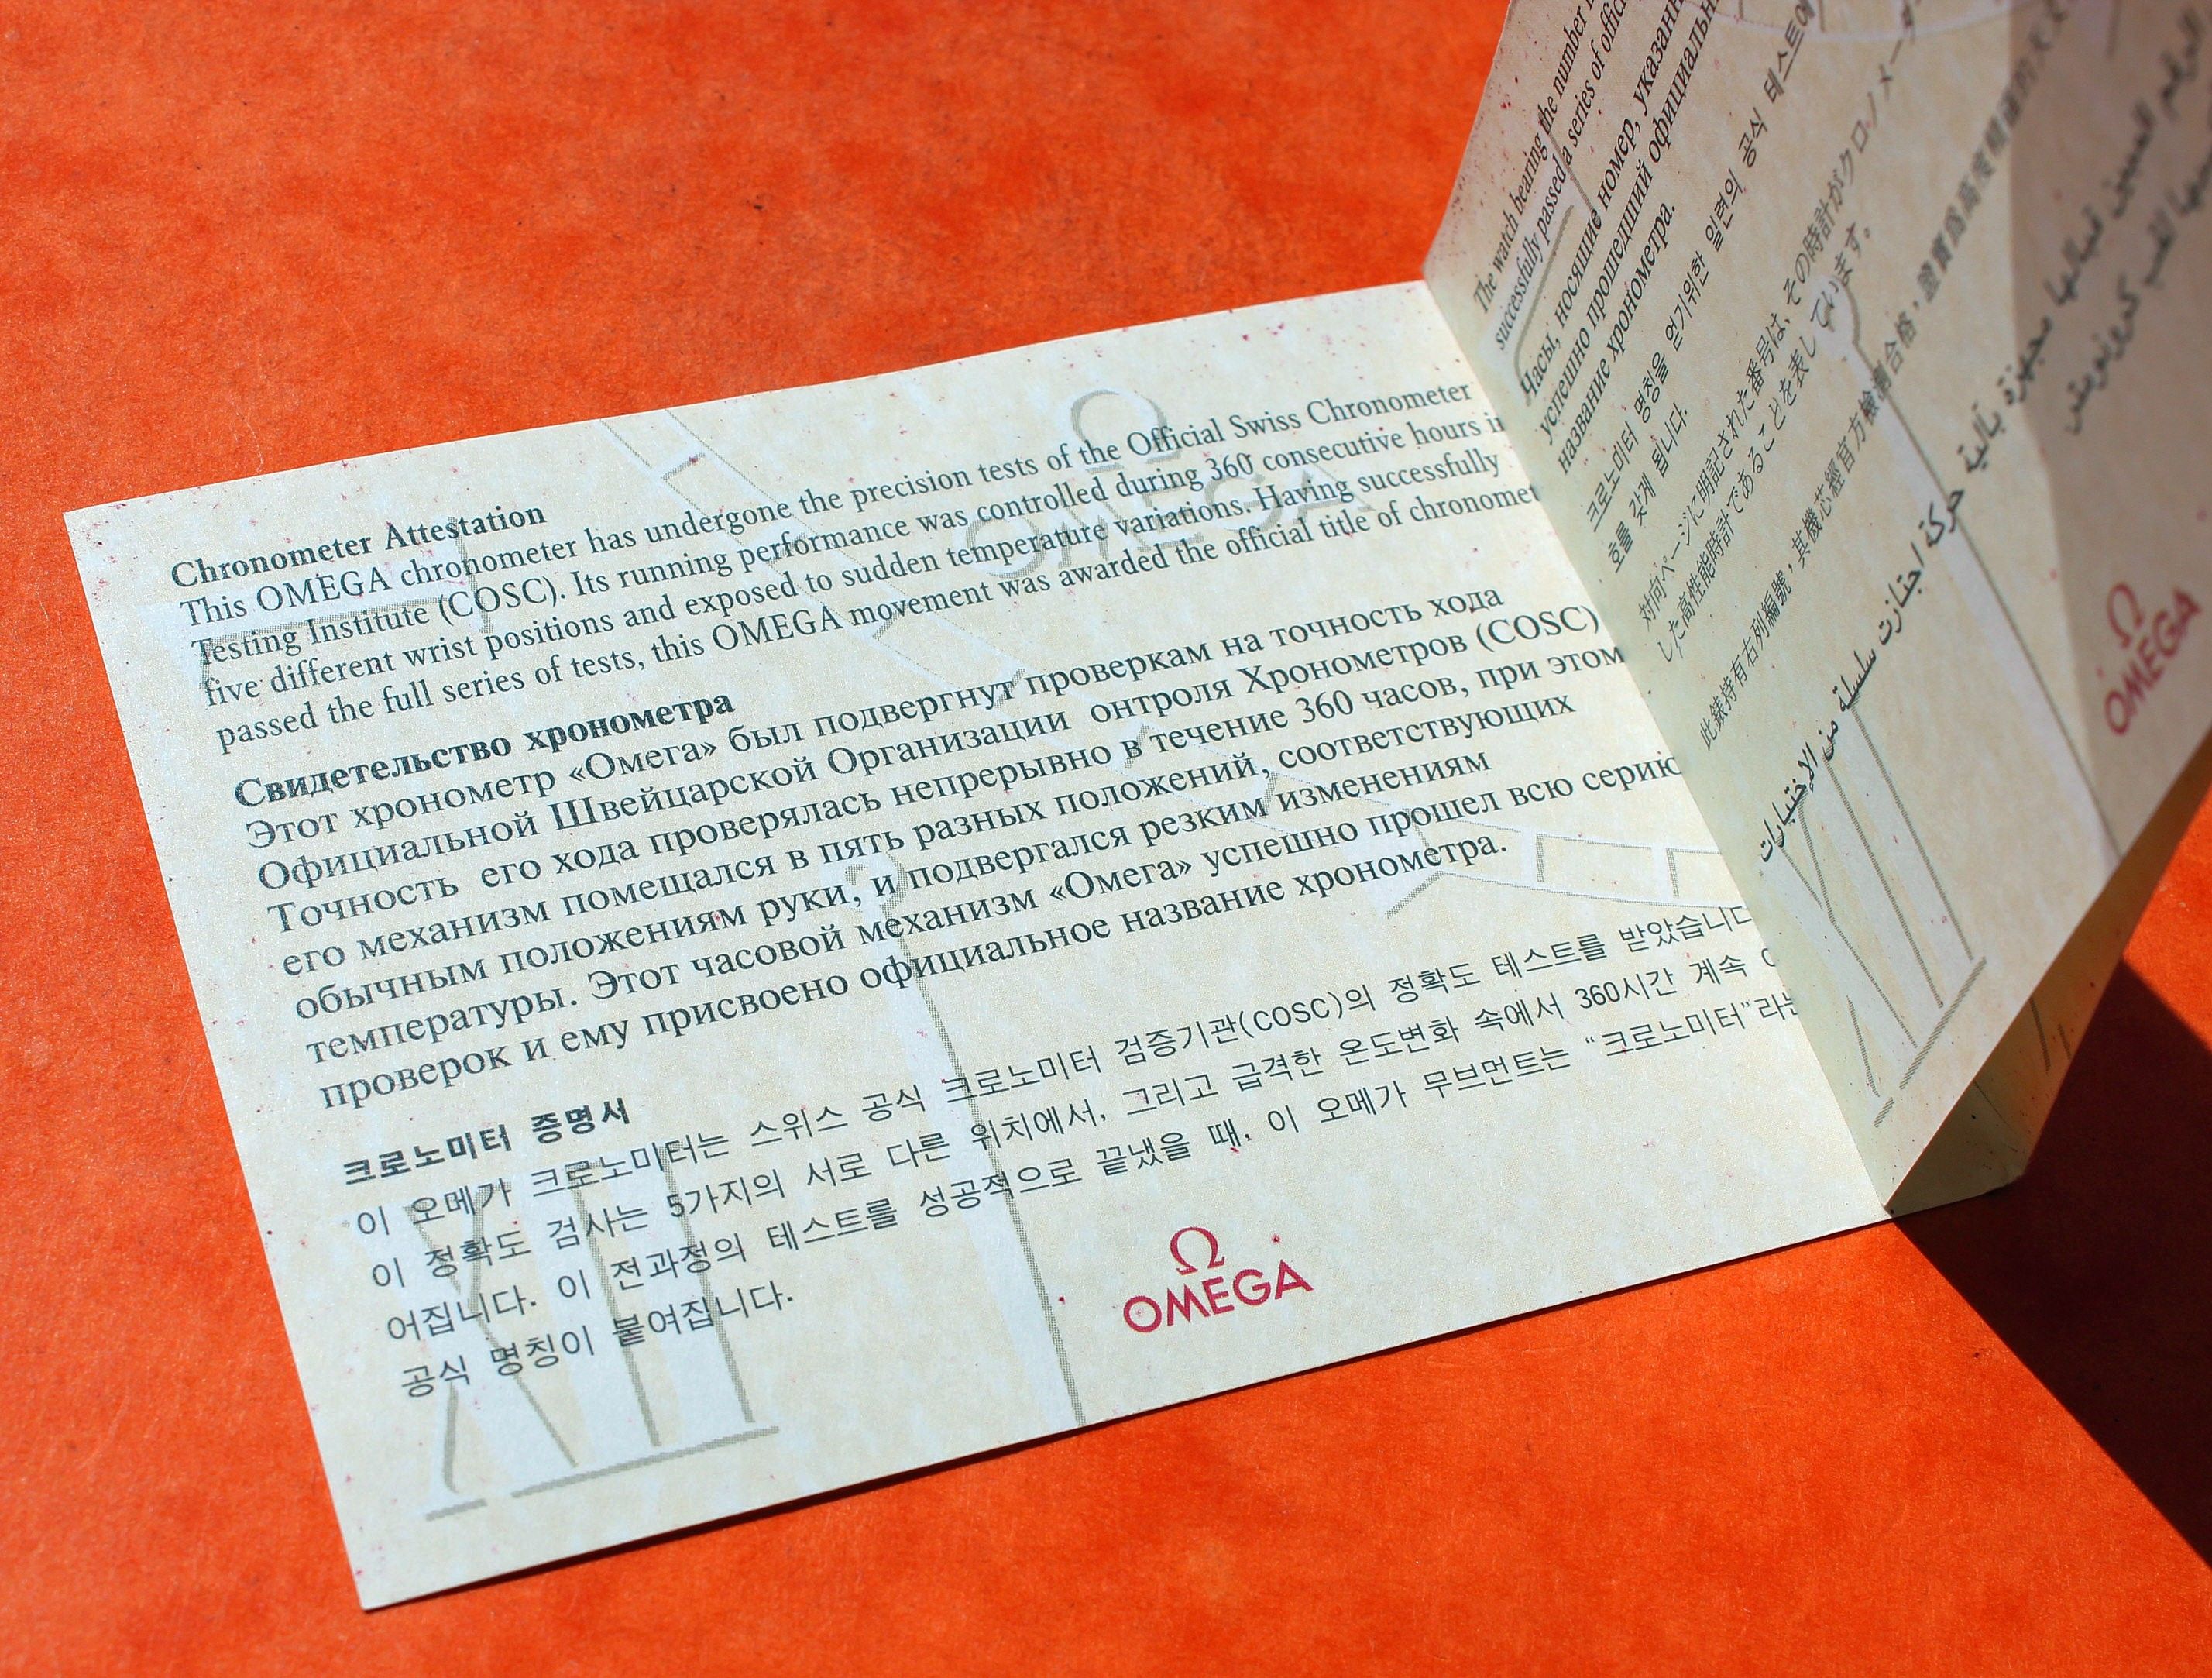 Chronometer Attestation
This OMEGA chronometer has undergone the precision tests of the Official Swiss Chronometer
Testing Institute (COSC). Its running performance was controlled during 360 consecutive hours in
five different wrist positions and exposed to sudden temperature variations. Having successfully
passed the full series of tests, this OMEGA movement was awarded the official title of chronomet
Свидетельство хронометра
Этот хронометр «Омега» был подвергнут проверкам на точность хода
Официальной Швейцарской Организации онтроля Хронометров (COSC)
Точность его хода проверялась непрерывно в течение 360 часов, при этом
его механизм помещался в пять разных положений, соответствующих
обычным положениям руки, и подвергался резким изменениям
температуры. Этот часовой механизм «Омега» успешно прошел всю серию
проверок и ему присвоено официальное название хронометра.
크로노미터 증명서
이 오메가 크로노미터는 스위스 공식 크로노미터 검증기관(COSC)의 정확도 테스트를 받았습니다
이 정확도 검사는 5가지의 서로 다른 위치에서, 그리고 급격한 온도변화 속에서 360시간 계속
어집니다. 이 전과정의 테스트를 성공적으로 끝냈을 때, 이 오메가 무브먼트는 "크로노미터"라는
공식 명칭이 붙여집니다.
Ω
OMEGA
Ω
OMEGA
The watch bearing the number
successfully passed a series of offic
Часы, носящие номер, указанн
успешно прошедший официальн
название хронометра.
크로노미터 명칭을 얻기위한 일련의 공식 테스트에
호를 갖게 됩니다.
対向ページに明記された番号は、その時計がクロノメータ
した高性能時計であることを表しています。
此錶持有右列編號，其機芯經官方檢測合格，
حركة اجتازت سلسلة من الاختبارات
Ω
OMEGA